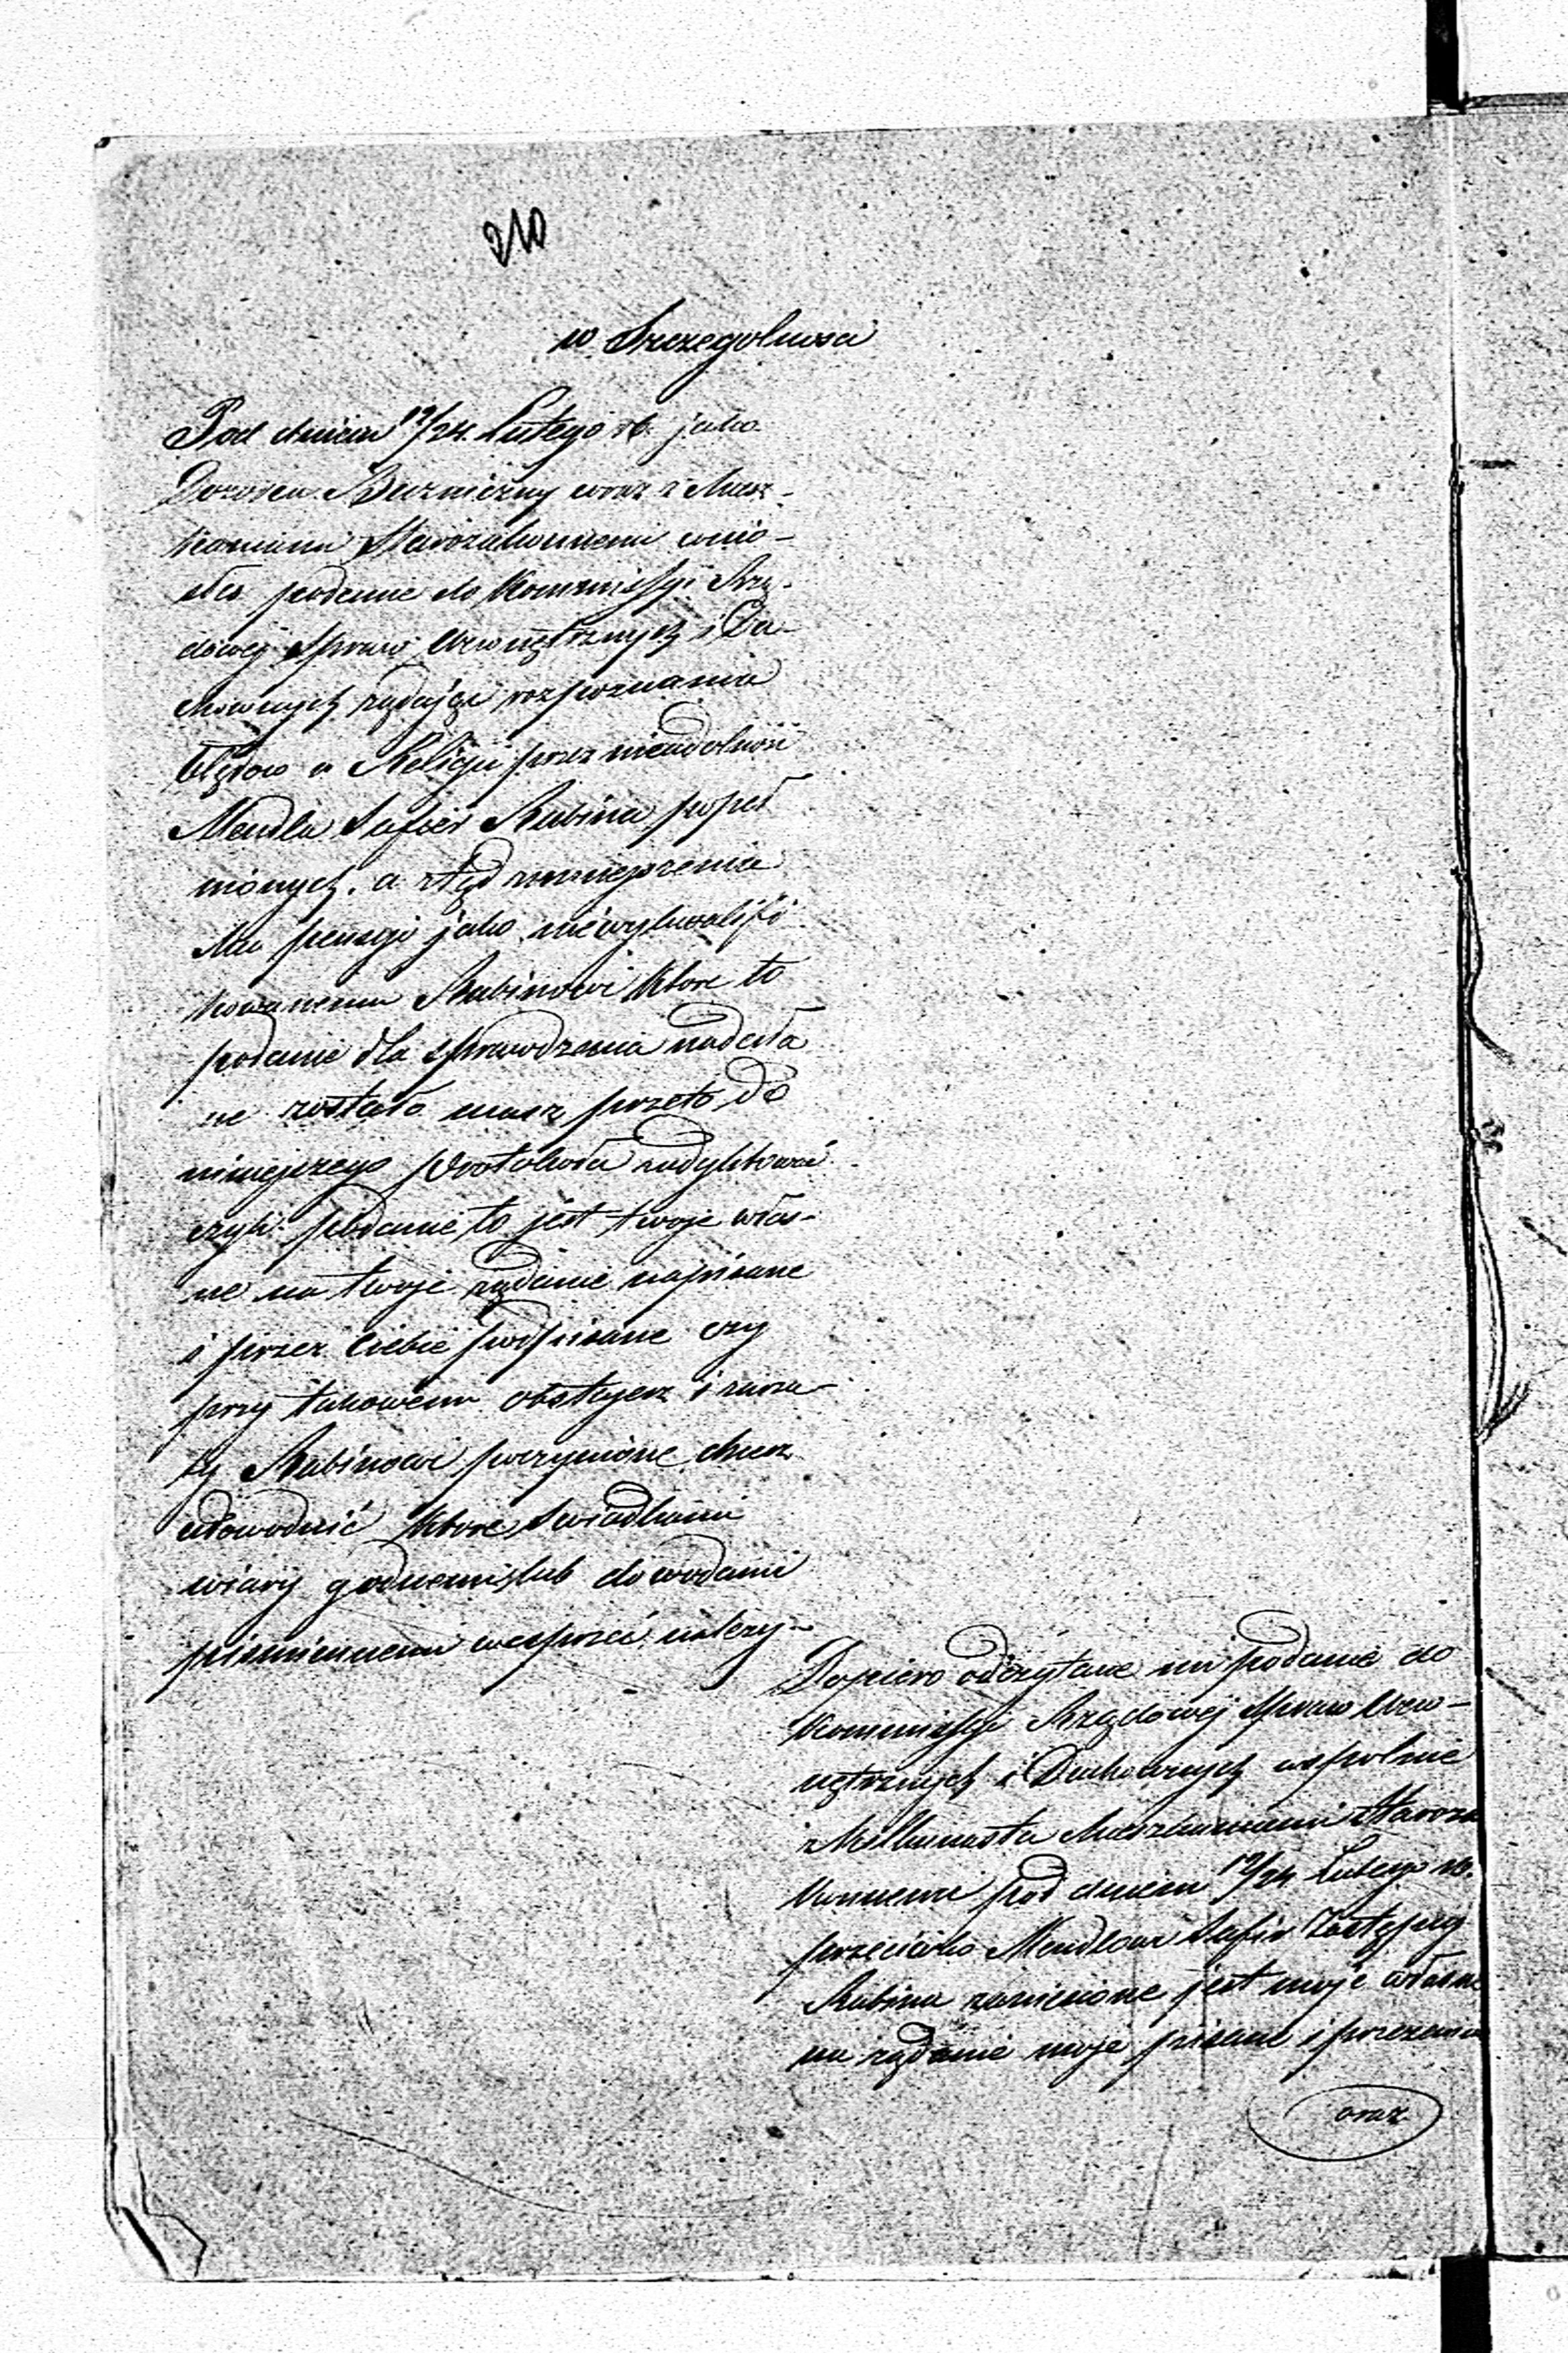 210
w Szczegolnosci
Pod dniem 12/24. Lutego rb. jako
Dozorca Bużniczny wraz z Miesz-
kancami Starozakonnemi wnio-
słeś podanie do Kommissyi Rzą-
dowej Spraw Wewnętrznych i Du-
chownych, żądając rozpoznania
błędow w Religii przez nieudolność
Mendla Safier Rabina popeł
nionych, a ztąd zmniejszenia
Mu pensyi jako niewykwalifi
kowanemu Rabinowi ktore to
podanie dla sprawdzenia nadesła
ne zostało masz przeto do
niniejszego Protokołu zadyktować
czyli podanie to jest twoje włas-
ne na twoje żądanie napisane
i przez Ciebie podpisane czy
przy takowem obstajesz i zarzu-
ty Rabinowi poczynione chcesz
udowodnić ktore Swiadkami
wiary godnemi lub dowodami
pismiennemi wesprzeć należy-
Dopiero odczytane mi podanie do
Kommissyi Rządowej Spraw Wew-
nętrznych i Duchownych wspolnie
z Kilkunastu Mieszkancami Staroza
konnemi pod dniem 12/24 Lutego rb.
przeciwko Mendlowi Safir Zastępcy
Rabina zaniesione jest moje własne
na żądanie moje pisane i przezemn
oraz